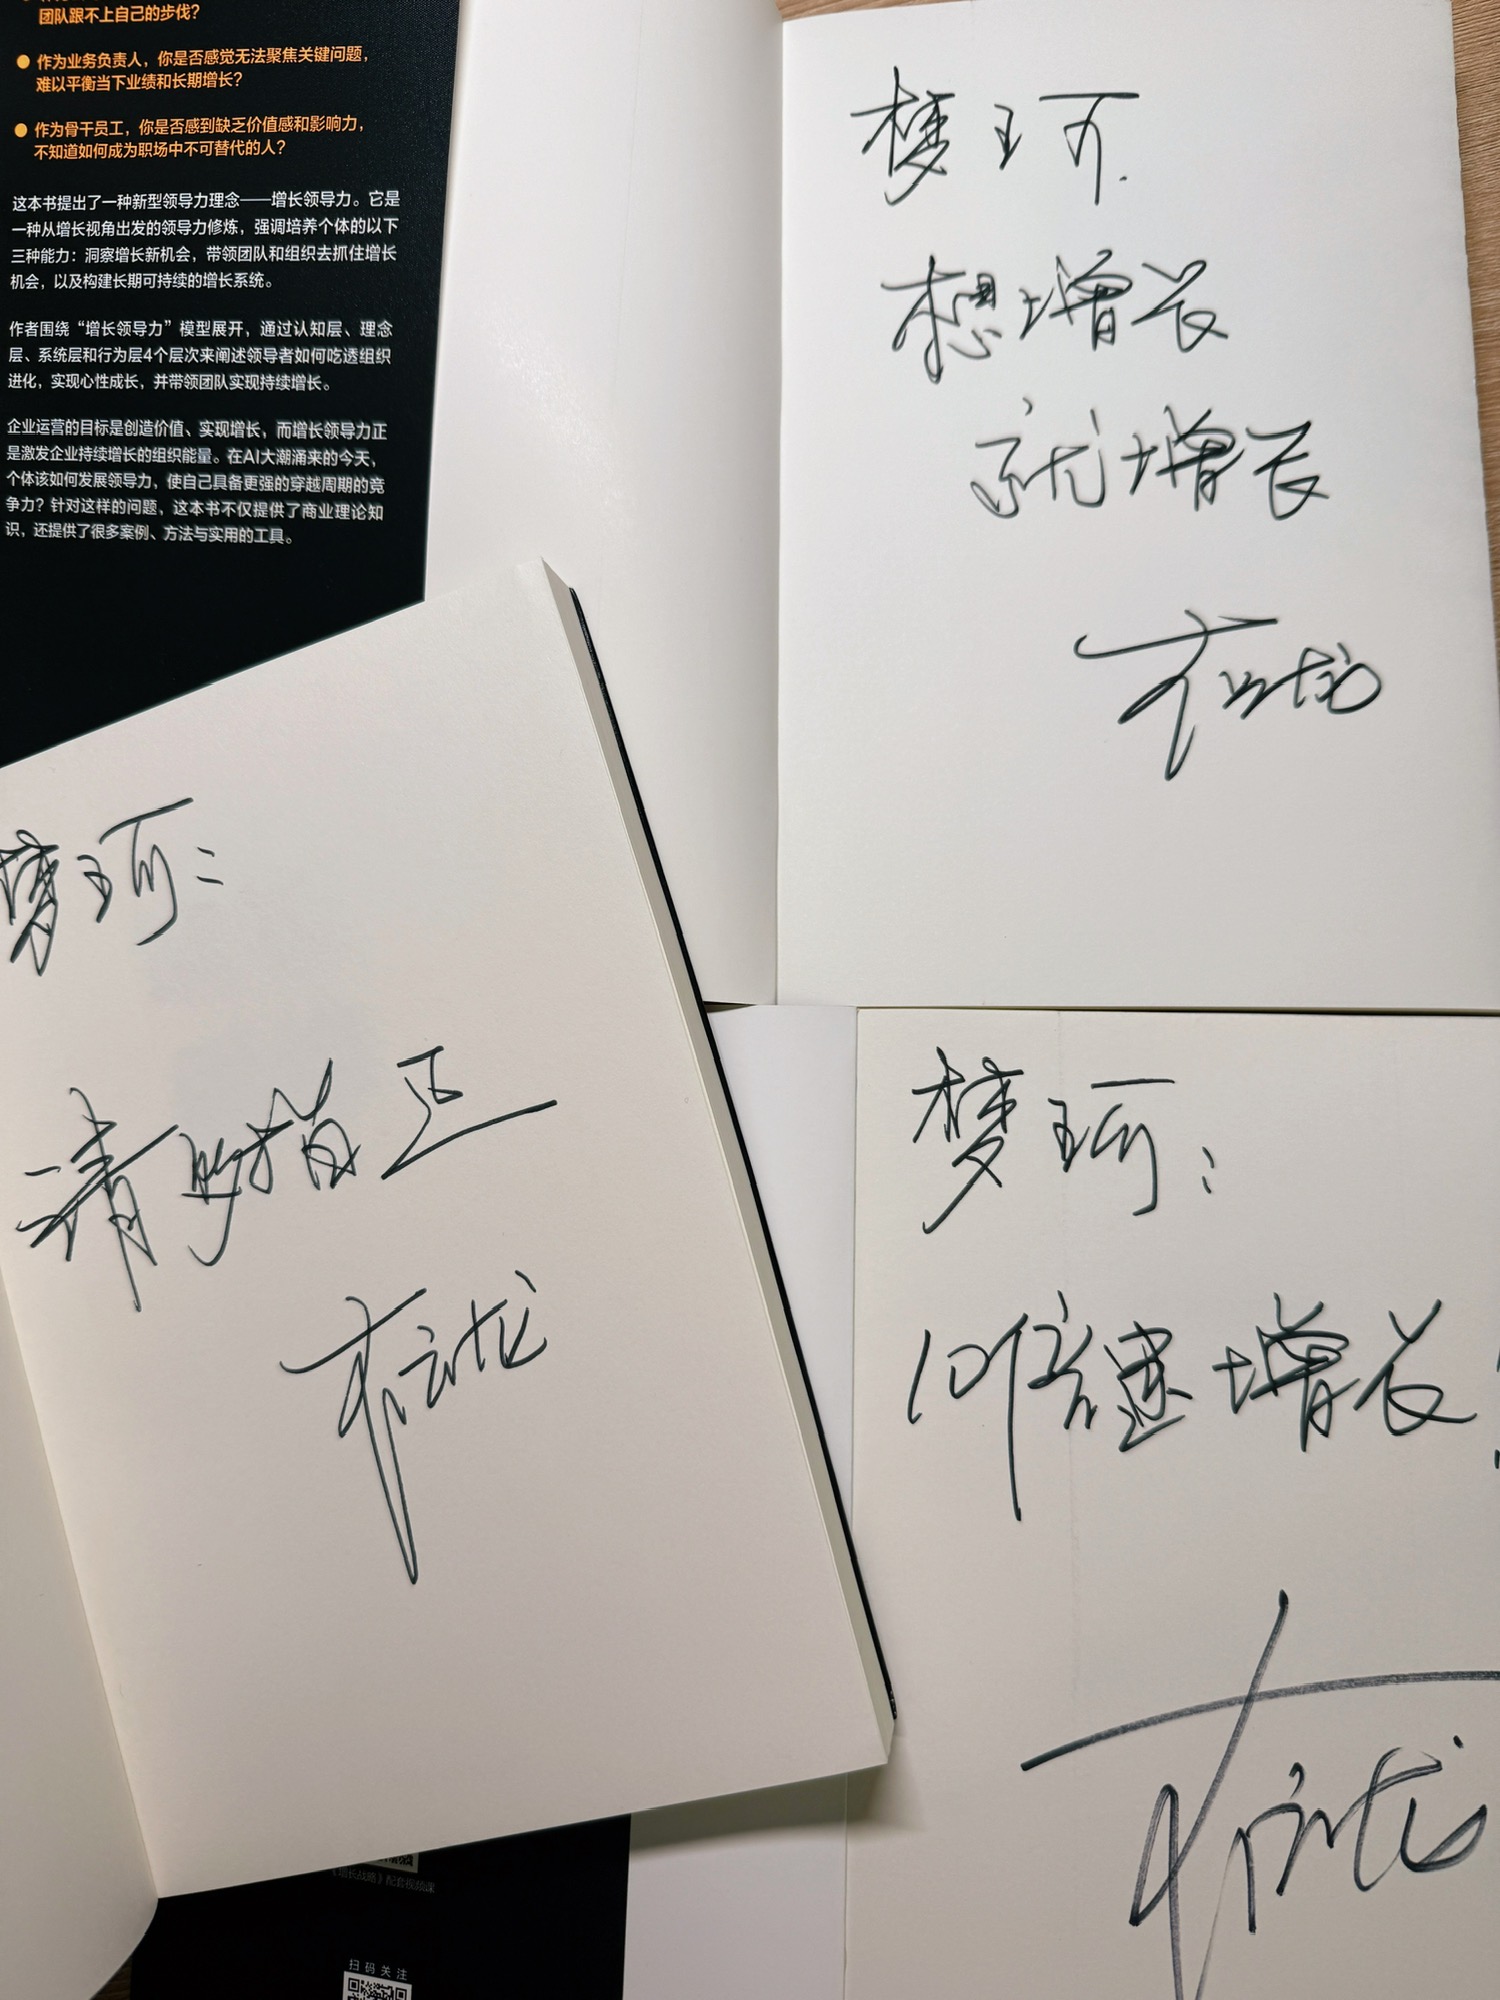 团队跟不上自己的步伐?
● 作为业务负责人，你是否感觉无法聚焦关键问题，
难以平衡当下业绩和长期增长?
● 作为骨干员工，你是否感到缺乏价值感和影响力，
不知道如何成为职场中不可替代的人?
这本书提出了一种新型领导力理念——增长领导力。它是
一种从增长视角出发的领导力修炼，强调培养个体的以下
三种能力：洞察增长新机会，带领团队和组织去抓住增长
机会，以及构建长期可持续的增长系统。
作者围绕“增长领导力”模型展开，通过认知层、理念
层、系统层和行为层4个层次来阐述领导者如何吃透组织
进化，实现心性成长，并带领团队实现持续增长。
企业运营的目标是创造价值、实现增长，而增长领导力正
是激发企业持续增长的组织能量。在AI大潮涌来的今天，
个体该如何发展领导力，使自己具备更强的穿越周期的竞
争力？针对这样的问题，这本书不仅提供了商业理论知
识，还提供了很多案例、方法与实用的工具。
梦珂
想增长
就增长
梦珂：
请多指正
梦珂：
10倍速增长!
《增长战略》配套视频课
扫码关注